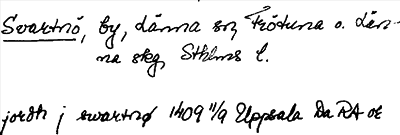 Svartnö, by, Länna sn, Frötuna o. Län-
na skg, Sthlms l.
jordh j swartnø 1409 11/9 Uppsala Da RA or